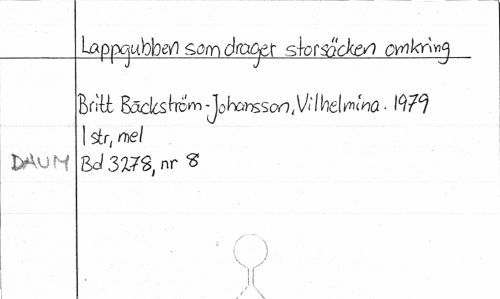 Lappgubben som drager storsäcken omkring
Britt Bäckström-Johansson, Vilhelmina. 1979
1 str, mel
DAUM Bd 3278, nr 8